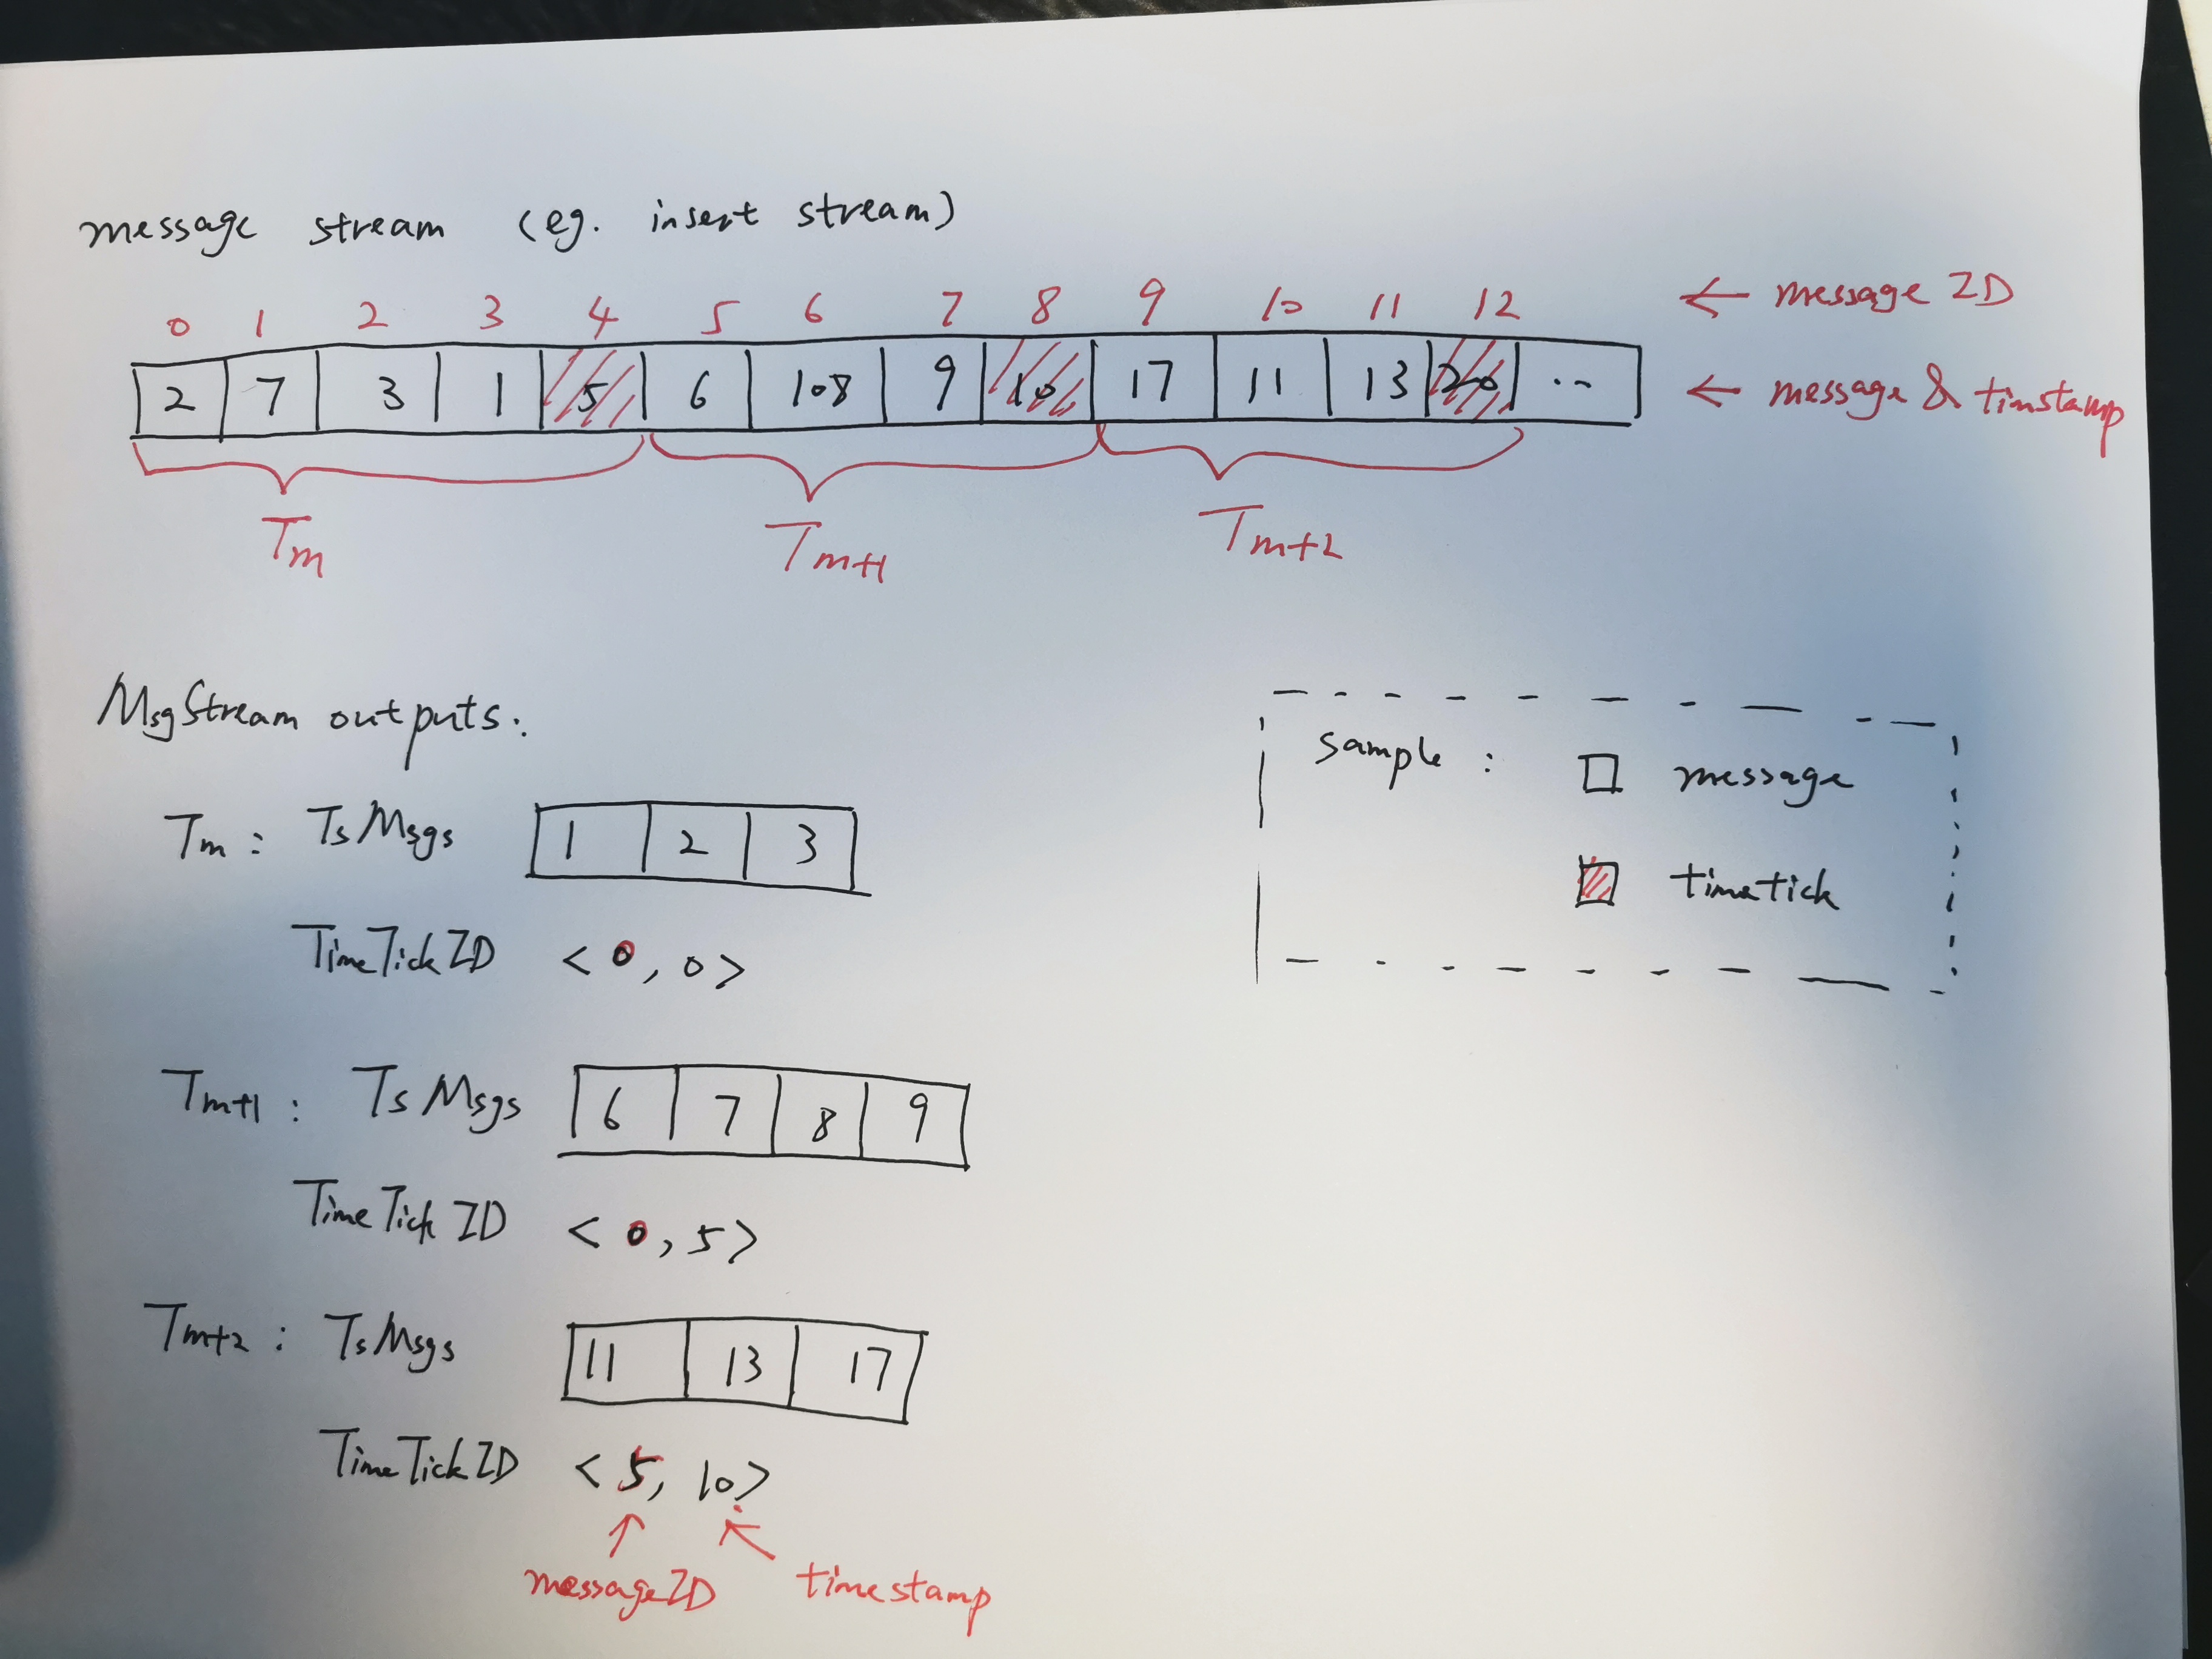 message stream (eg. insert stream)
0 1 2 3 4 5 6 7 8 9 10 11 12 ← message ID
2 7 3 1 5 6 108 9 10 17 11 13 20 ·· ← message & timstamp
Tm Tm+1 Tm+2
MsgStream outputs:
sample : message
Tm : TsMsgs 1 2 3
timetick
TimeTickID <0, 0>
Tm+1 : TsMsgs 6 7 8 9
TimeTickID <0, 5>
Tm+2 : TsMsgs 11 13 17
TimeTickID <5, 10>
messageID timestamp